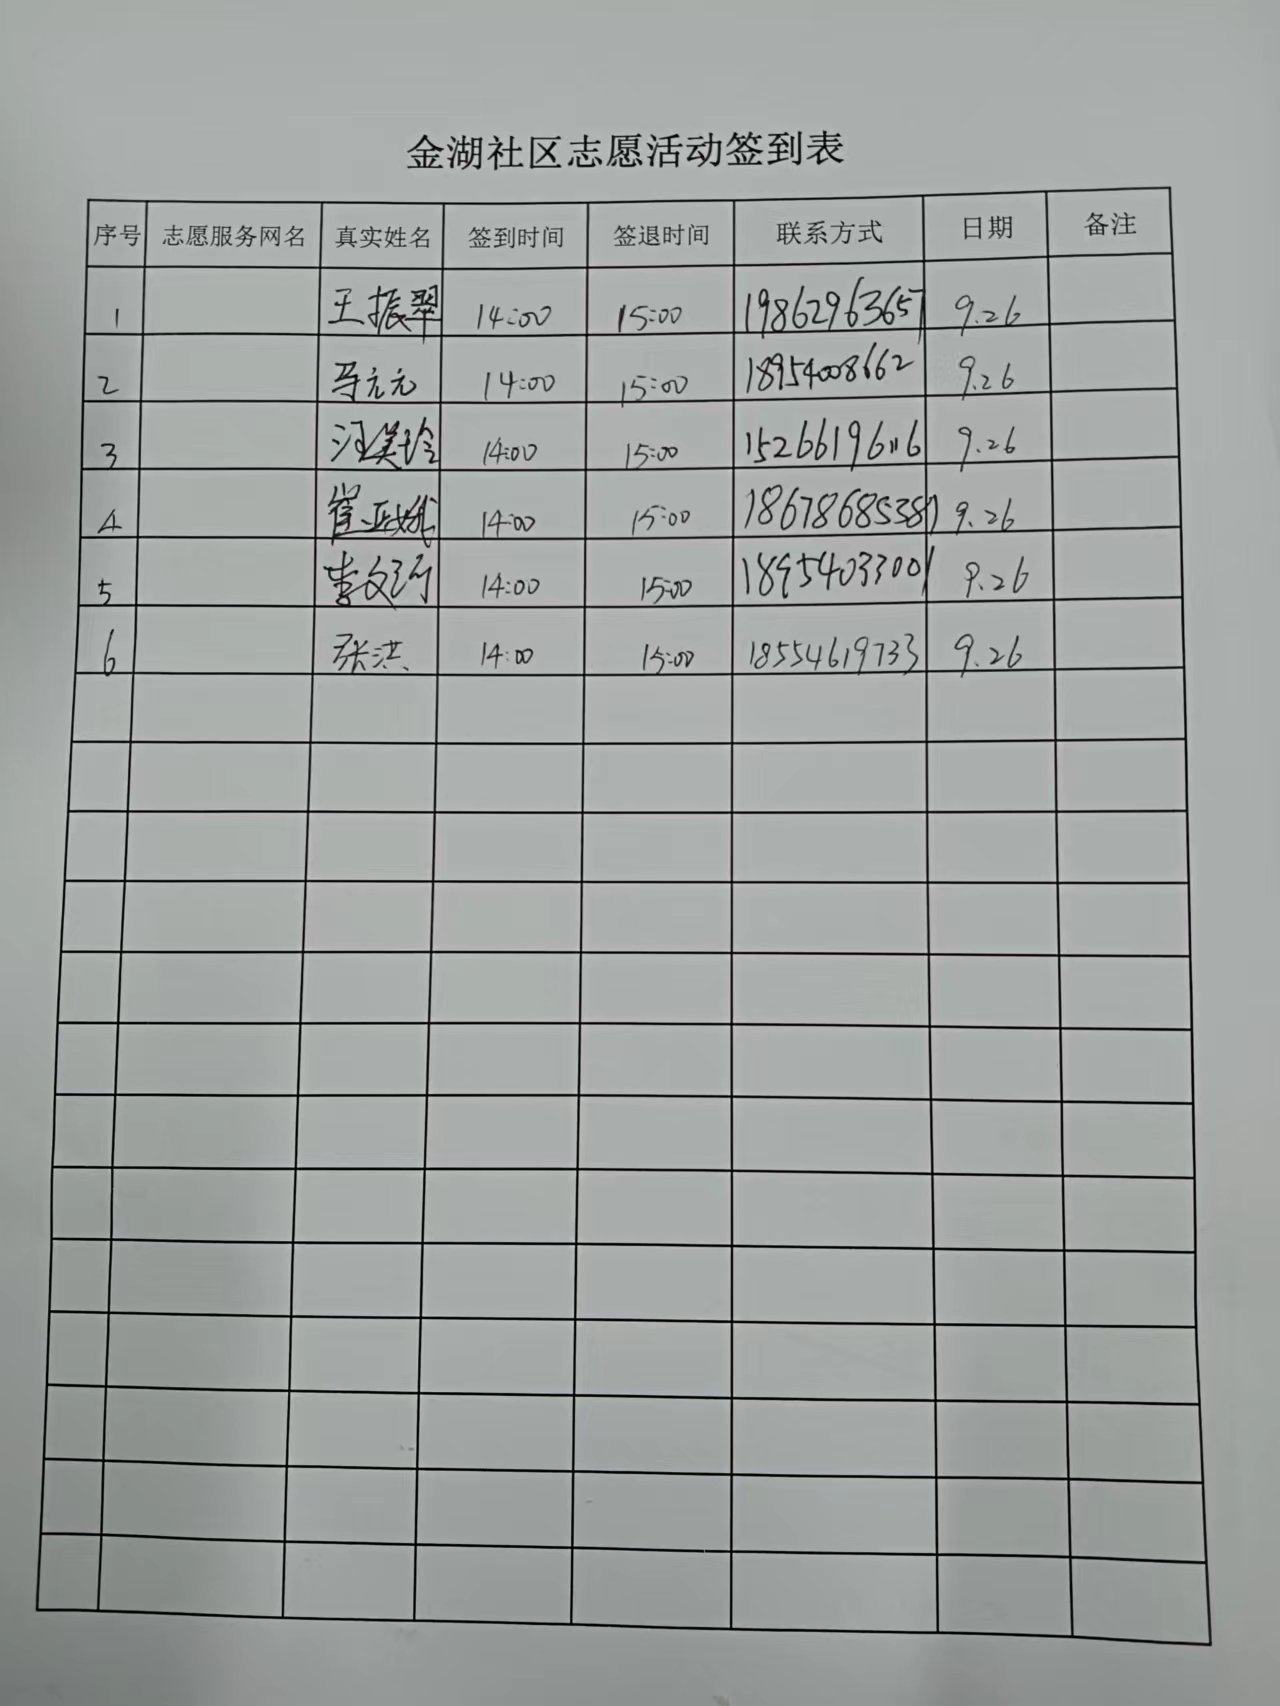 金湖社区志愿活动签到表
序号 志愿服务网名 真实姓名 签到时间 签退时间 联系方式 日期 备注
1 王振翠 14:00 15:00 19862963657 9.26
2 马元元 14:00 15:00 18954008662 9.26
3 汪美玲 14:00 15:00 15266196116 9.26
4 崔亚娥 14:00 15:00 18678685387 9.26
5 李文 14:00 15:00 18954033001 9.26
6 张洪 14:00 15:00 18554619733 9.26